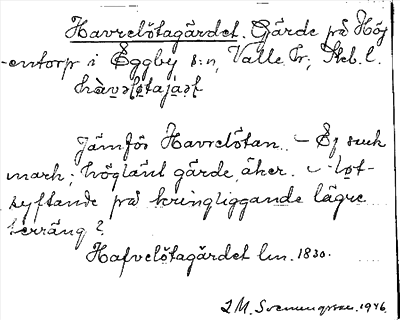 Havrelötagärdet. Gärde på Höj
-entorp i Eggby s:n, Valle hr; Skb. l.
hàvreløtajäɹt
Jämför Havrelötan. – Ej suck
mark; högländ gärde, åker. – löt-
syftande på kringliggande lägre
terräng?
Hafvelötagärdet lm. 1830.
1946.